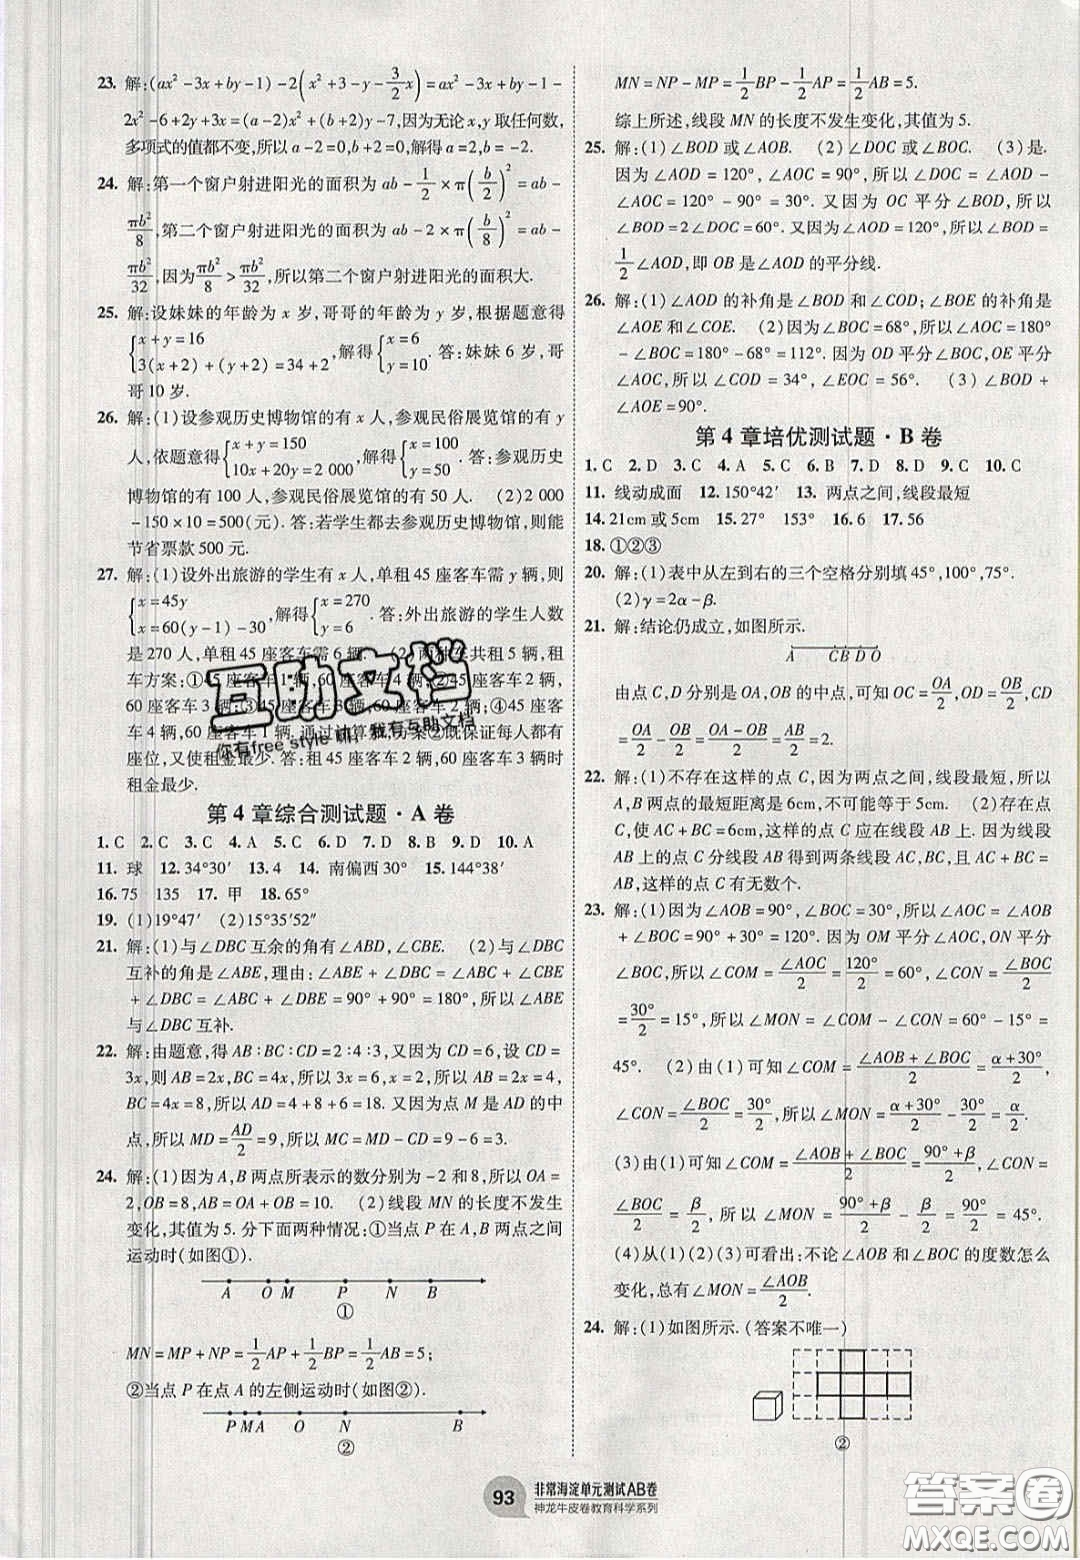 23. 解:(ax²-3x+by-1)-2(x²+3-y-3/2x)=ax²-3x+by-1-
2x²-6+2y+3x=(a-2)x²+(b+2)y-7,因为无论x,y取任何数,
多项式的值都不变,所以a-2=0,b+2=0,解得a=2,b=-2.
24. 解:第一个窗户射进阳光的面积为ab-1/2×π(b/2)²=ab-
πb²/8,第二个窗户射进阳光的面积为ab-2×π(b/8)²=ab-
πb²/32,因为πb²/8>πb²/32,所以第二个窗户射进阳光的面积大.
25. 解:设妹妹的年龄为x岁,哥哥的年龄为y岁,根据题意得
{x+y=16
3(x+2)+(y+2)=34+2,解得{x=6
y=10.答:妹妹6岁,哥
哥10岁.
26. 解:(1)设参观历史博物馆的有x人,参观民俗展览馆的有y
人,依题意得{x+y=150
10x+20y=2000,解得{x=100
y=50.答:参观历史
博物馆的有100人,参观民俗展览馆的有50人. (2)2 000
-150×10=500(元).答:若学生都去参观历史博物馆,则能
节省票款500元.
27. 解:(1)设外出旅游的学生有x人,单租45座客车需y辆,则
{x=45y
x=60(y-1)-30,解得{x=270
y=6.答:外出旅游的学生人数
是270人,单租45座客车需6辆. (2)两种车共租5辆,租
车方案:①45座客车1辆,60座客车4辆;②45座客车2辆,
60座客车3辆;③45座客车3辆,60座客车2辆;④45座
客车4辆,60座客车1辆.通过计算知,方案②既保证每人都有
座位,又使租金最少.答:租45座客车2辆,60座客车3辆时
租金最少.
第4章综合测试题·A卷
1. C 2. C 3. C 4. A 5. C 6. D 7. D 8. B 9. D 10. A
11. 球 12. 34°30′ 13. 4 14. 南偏西30° 15. 144°38′
16. 75 135 17. 甲 18. 65°
19. (1)19°47′ (2)15°35′52″
21. 解:(1)与∠DBC互余的角有∠ABD,∠CBE. (2)与∠DBC
互补的角是∠ABE,理由:∠ABE+∠DBC=∠ABC+∠CBE
+∠DBC=∠ABC+∠DBE=90°+90°=180°,所以∠ABE
与∠DBC互补.
22. 解:由题意,得AB∶BC∶CD=2∶4∶3,又因为CD=6,设CD=
3x,则AB=2x,BC=4x,所以3x=6,解得x=2,所以AB=2x=4,
BC=4x=8,所以AD=4+8+6=18.又因为点M是AD的中
点,所以MD=AD/2=9,所以MC=MD-CD=9-6=3.
24. 解:(1)因为A,B两点所表示的数分别为-2和8,所以OA=
2,OB=8,所以AB=OA+OB=10. (2)线段MN的长度不发生
变化,其值为5.分下面两种情况:①当点P在A,B两点之间
运动时(如图①).
A O M P N B
①
MN=MP+NP=1/2AP+1/2BP=1/2AB=5;
②当点P在点A的左侧运动时(如图②).
P M A O N B
②
MN=NP-MP=1/2BP-1/2AP=1/2AB=5.
综上所述,线段MN的长度不发生变化,其值为5.
25. 解:(1)∠BOD或∠AOB. (2)∠DOC或∠BOC. (3)是.
因为∠AOD=120°,∠AOC=90°,所以∠DOC=∠AOD-
∠AOC=120°-90°=30°.又因为OC平分∠BOD,所以
∠BOD=2∠DOC=60°.又因为∠AOD=120°,所以∠BOD=
1/2∠AOD,即OB是∠AOD的平分线.
26. 解:(1)∠AOD的补角是∠BOD和∠COD;∠BOE的补角是
∠AOE和∠COE. (2)因为∠BOC=68°,所以∠AOC=180°
-∠BOC=180°-68°=112°.因为OD平分∠BOC,OE平分
∠AOC,所以∠COD=34°,∠EOC=56°. (3)∠BOD+
∠AOE=90°.
第4章培优测试题·B卷
1. C 2. D 3. C 4. A 5. C 6. B 7. D 8. D 9. C 10. C
11. 线动成面 12. 150°42′ 13. 两点之间,线段最短
14. 21cm或5cm 15. 27° 153° 16. 6 17. 56
18. ①②③
20. 解:(1)表中从左到右的三个空格分别填45°,100°,75°.
(2)γ=2α-β.
21. 解:结论仍成立,如图所示.
A C B D O
由点C,D分别是OA,OB的中点,可知OC=OA/2,OD=OB/2,CD
=OA/2-OB/2=OA-OB/2=AB/2=2.
22. 解:(1)不存在这样的点C,因为两点之间,线段最短,所以
A,B两点的最短距离是6cm,不可能等于5cm. (2)存在点
C,使AC+BC=6cm,这样的点C应在线段AB上.因为线段
AB上的点C分线段AB得到两条线段AC,BC,且AC+BC
=AB=6cm,所以这样的点C有无数个.
23. 解:(1)因为∠AOB=90°,∠BOC=30°,所以∠AOC=∠AOB
+∠BOC=90°+30°=120°.因为OM平分∠AOC,ON平分
∠BOC,所以∠COM=∠AOC/2=120°/2=60°,∠CON=∠BOC/2
=30°/2=15°,所以∠MON=∠COM-∠CON=60°-15°=
45°. (2)由(1)可知∠COM=∠AOB+∠BOC/2=α+30°/2,
∠CON=∠BOC/2=30°/2,所以∠MON=α+30°/2-30°/2=α/2.
(3)由(1)可知∠COM=∠AOB+∠BOC/2=90°+β/2,∠CON=
∠BOC/2=β/2,所以∠MON=90°+β/2-β/2=90°/2=45°.
(4)从(1)(2)(3)可看出:不论∠AOB和∠BOC的度数怎么
变化,总有∠MON=∠AOB/2.
24. 解:(1)如图所示.(答案不唯一)
②
93
非常海淀单元测试AB卷
神龙牛皮卷教育科学系列
互助文档
你有free style嘛,我有互助文档
答案圈
MXQE.COM